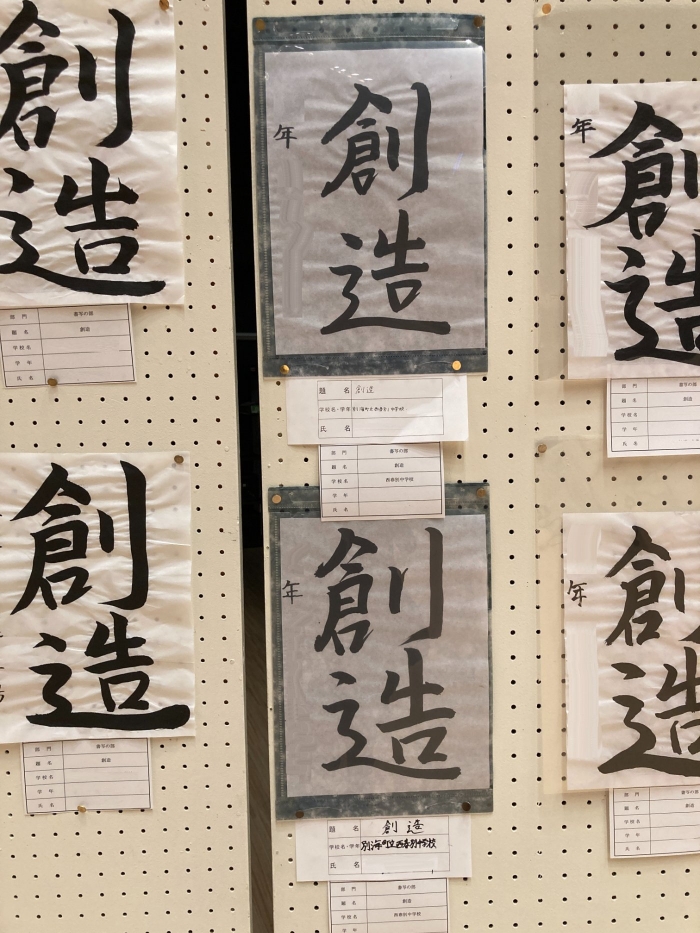 創
造
部 門 書写の部
題 名 創造
学校名
学 年
氏 名
創
造
部 門 書写の部
題 名 創造
学校名
学 年
氏 名
創
造
年
題 名 創造
学校名・学年
氏 名
部 門 書写の部
題 名 創造
学校名 西春別中学校
学 年
氏 名
創
造
年
題 名 創造
学校名・学年 別海町立西春別中学校
氏 名
部 門 書写の部
題 名 創造
学校名 西春別中学校
創
造
年
部 門 書写の部
題 名 創造
学校名
学 年
氏 名
創
造
年
部 門 書写の部
題 名 創造
学校名
学 年
氏 名